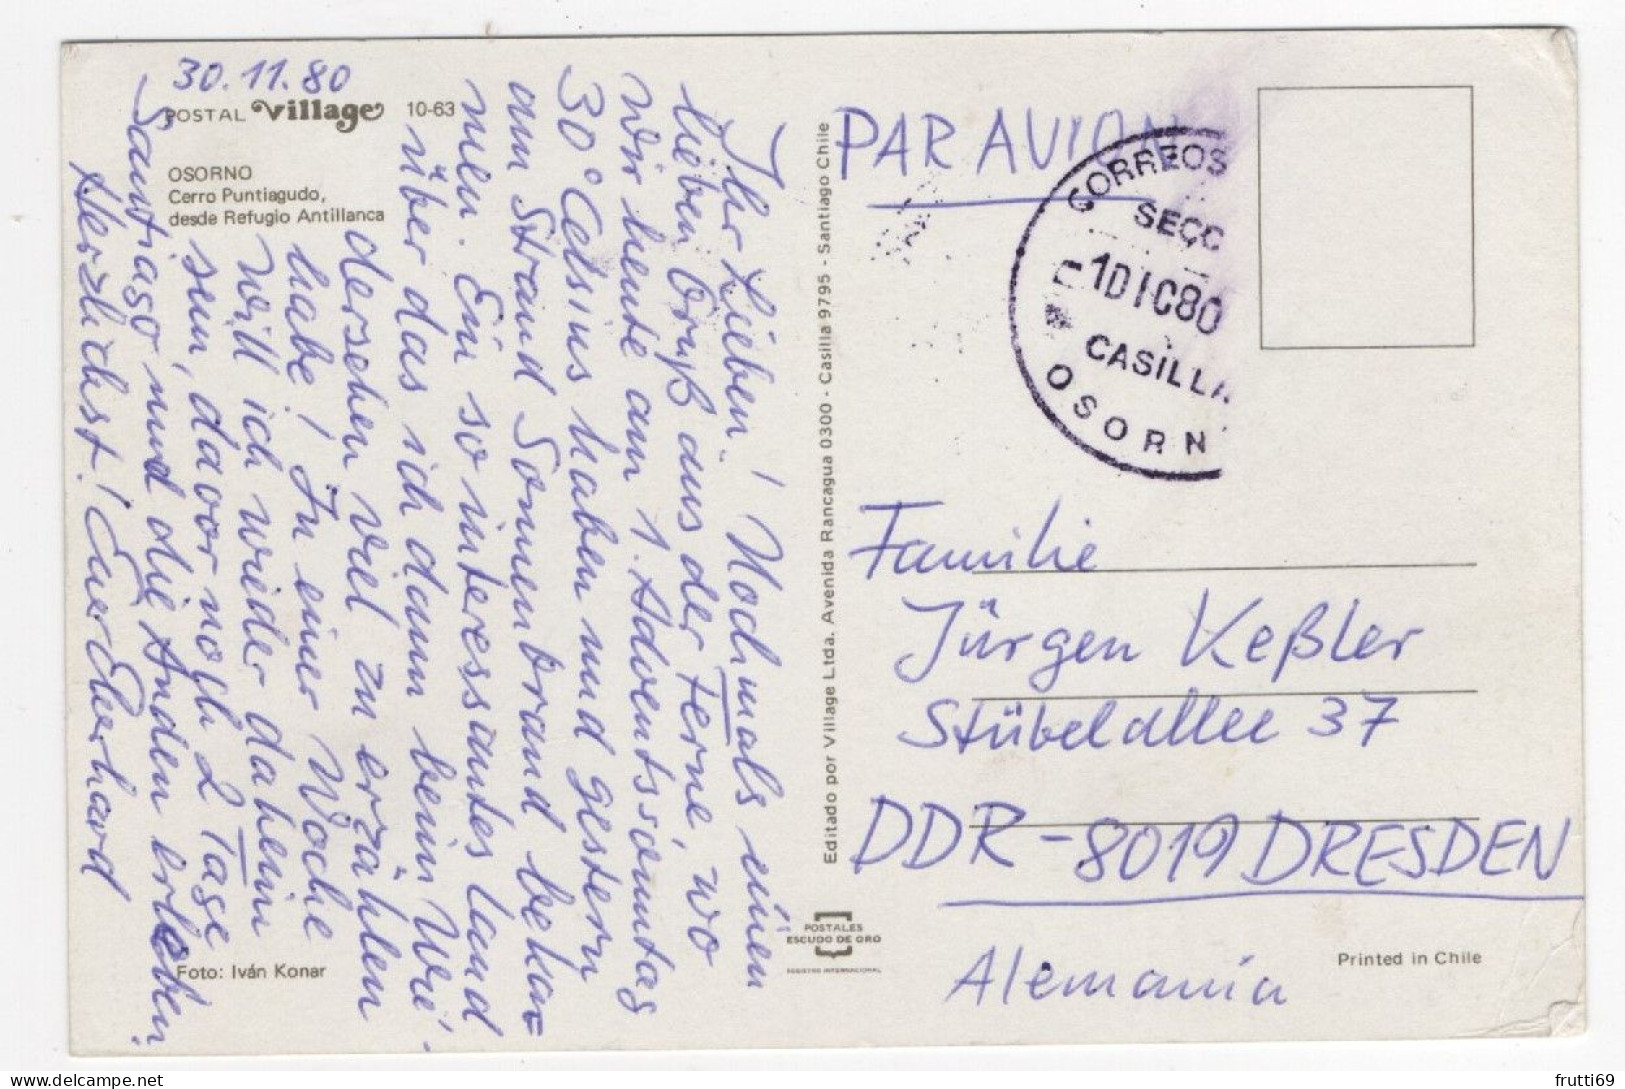 30.11.80
POSTAL Village 10-63
OSORNO
Cerro Puntiagudo,
desde Refugio Antillanca
Ihr Lieben! Nochmals einen
lieben Gruß aus der Ferne, wo
wir heute am 1. Adventssonntag
30° Celsius haben und gestern
am Strand Sonnenbrand bekam=
men. Ein so interessantes Land
über das ich dann beim Wie-
dersehen viel zu erzählen
habe! In einer Woche
will ich wieder daheim
sein, davor noch 2 Tage
Santiago und die Anden erleben.
Herzlichst! Euer Eberhard
Foto: Iván Konar
Editado por Village Ltda. Avenida Rancagua 0300 - Casilla 9795 - Santiago Chile
POSTALES
ESCUDO DE ORO
REGISTRO INTERNACIONAL
PAR AVION
CORREOS
SECC
1 DIC 80
CASILLA
OSORN
Familie
Jürgen Keßler
Stübelallee 37
DDR-8019 DRESDEN
Alemania
Printed in Chile
frutti69